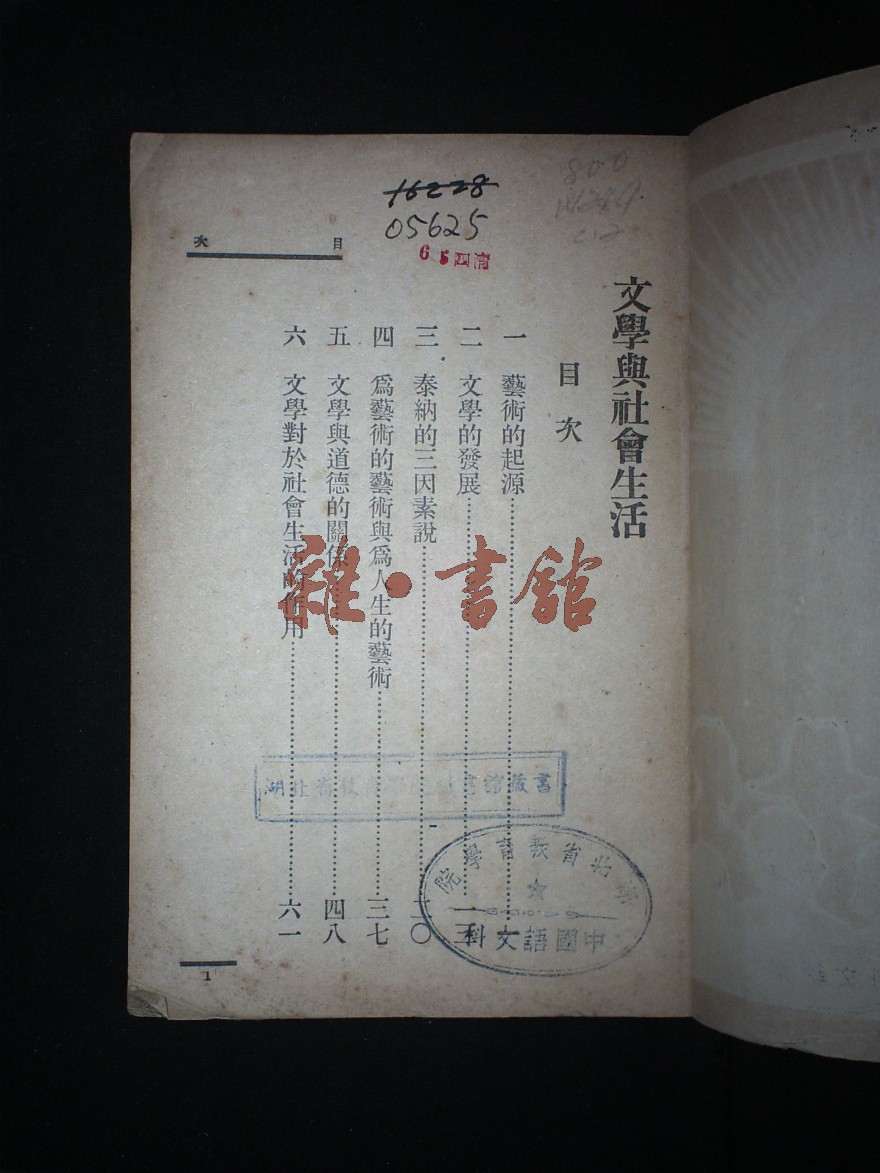 16228
05625
6 5四清
800
目次
文學與社會生活
目次
一 藝術的起源
二 文學的發展
三 泰納的三因素說 二〇
四 爲藝術的藝術與爲人生的藝術 三七
五 文學與道德的關係 四八
六 文學對於社會生活的作用 六一
雜·書館
湖北省教育學院圖書館藏書
湖北省教育學院
中國語文科
1